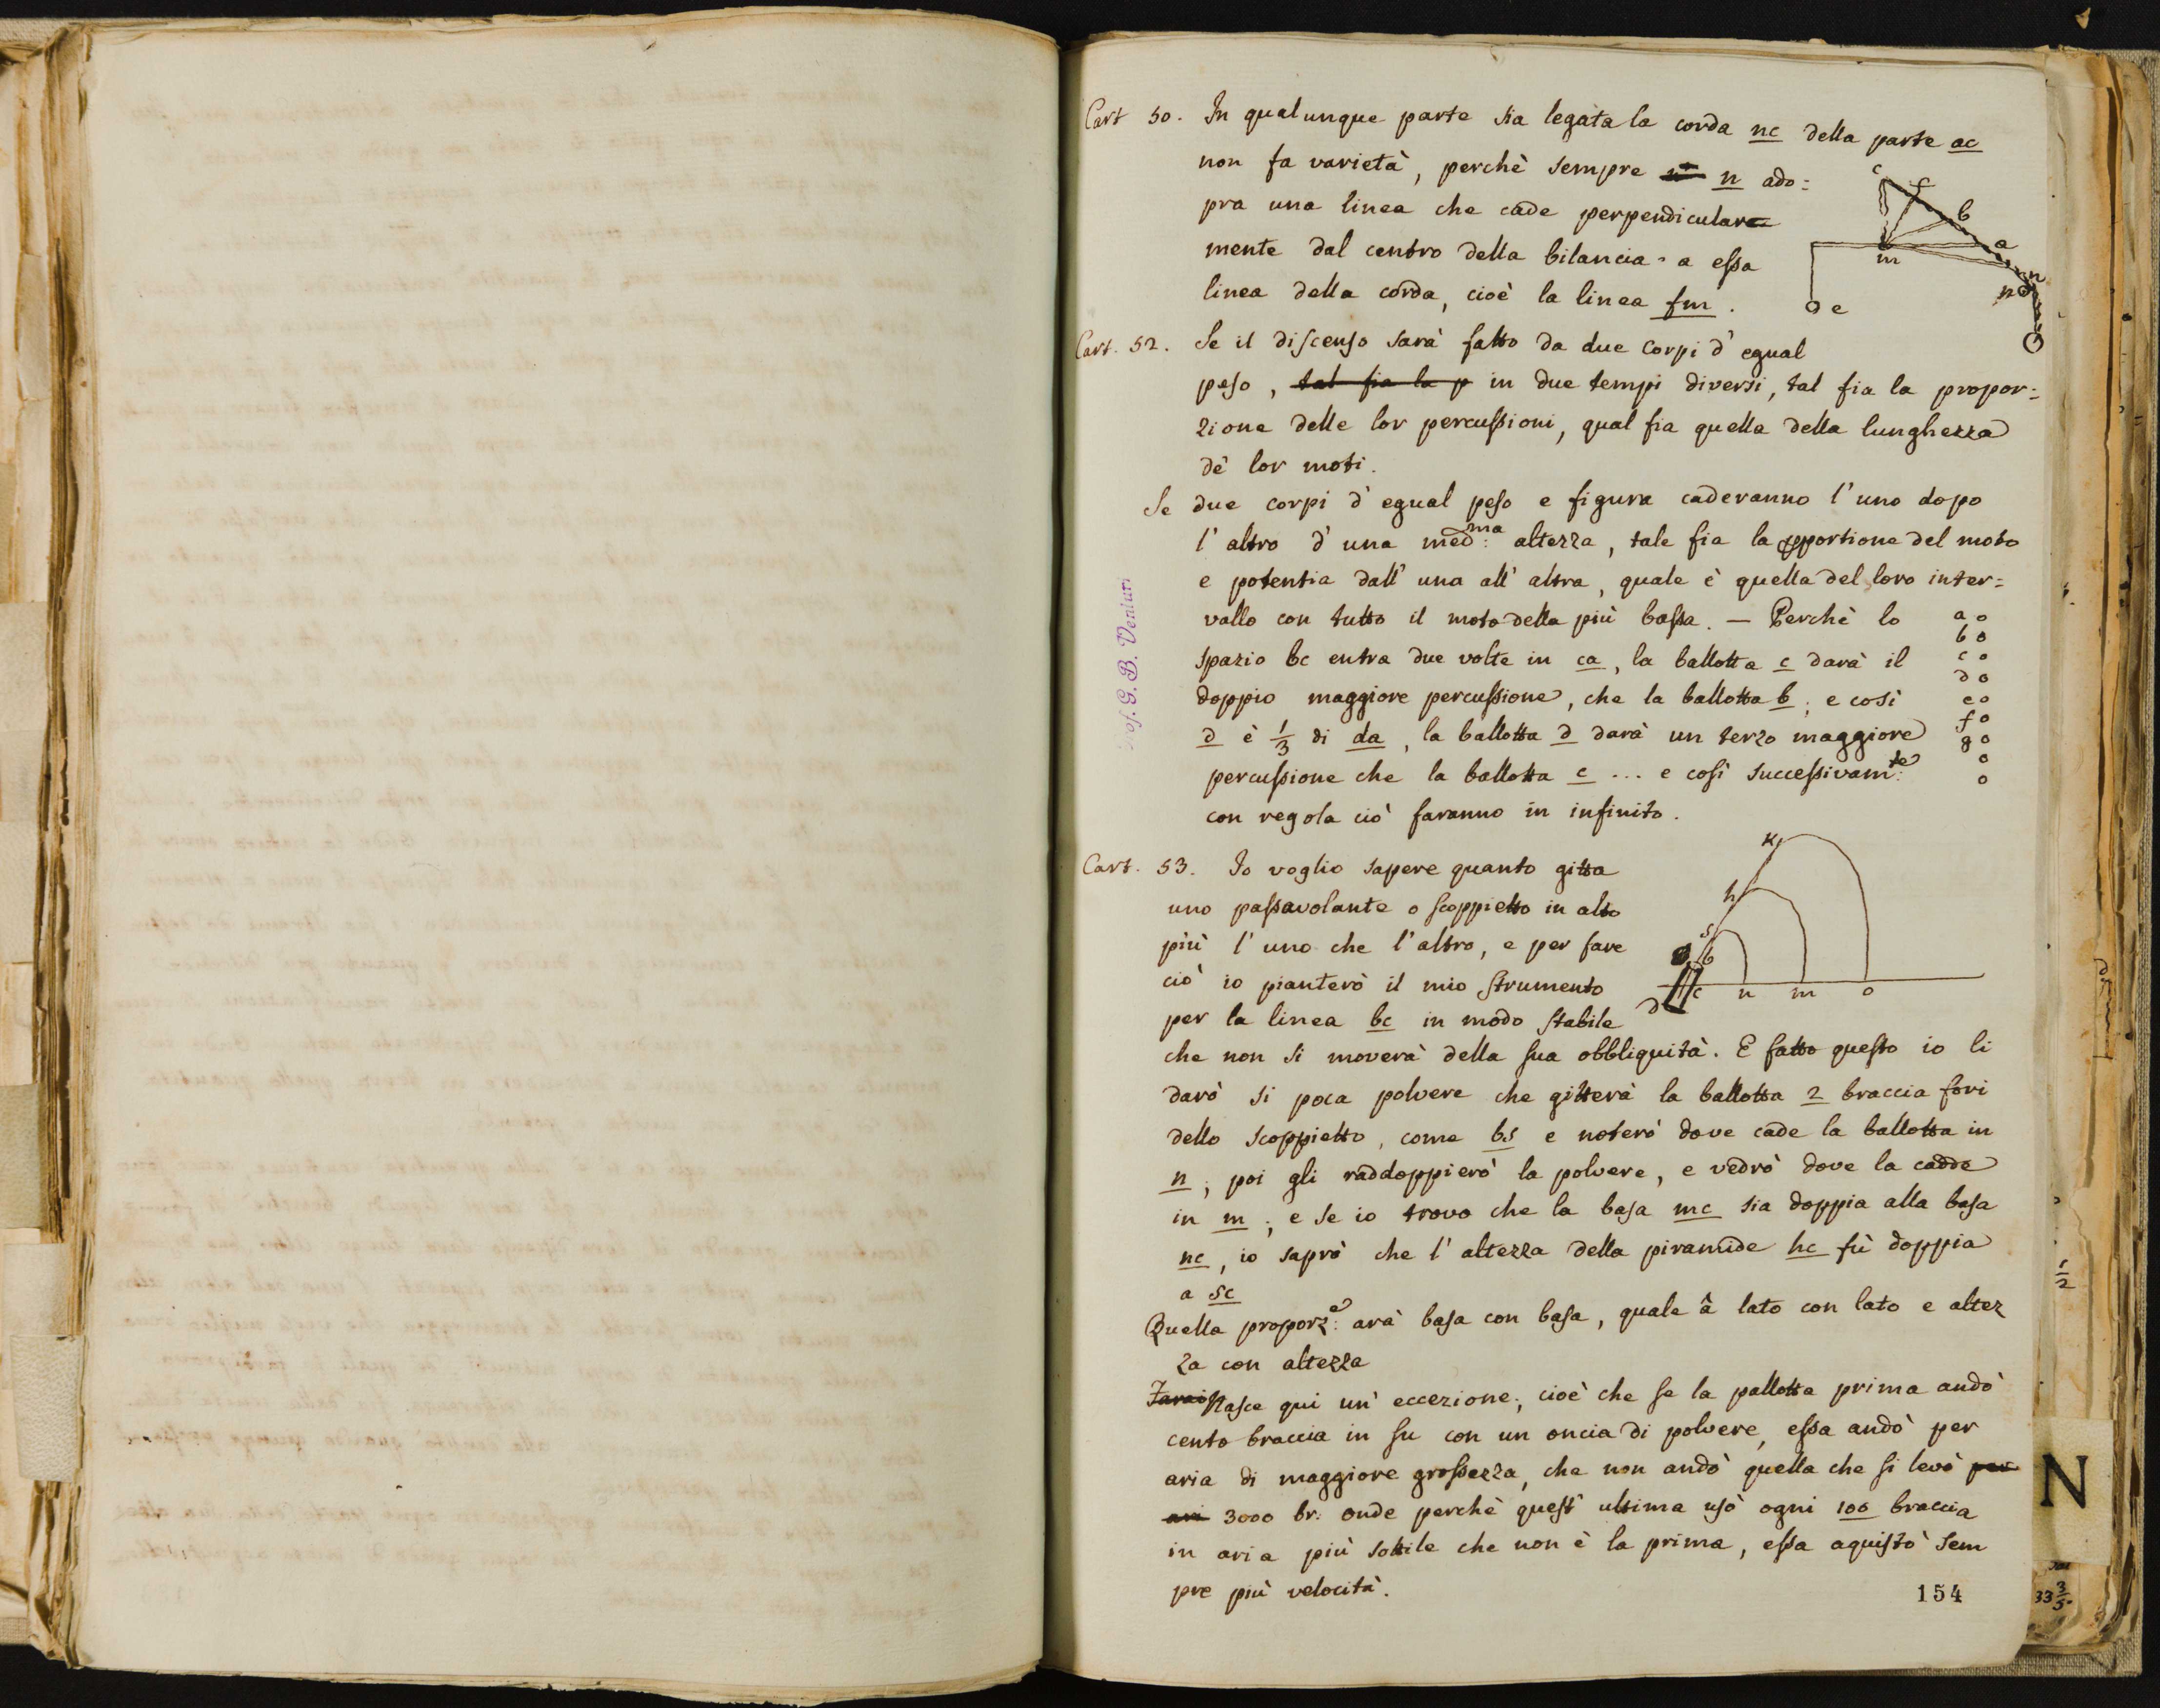 Cart 50. In qualunque parte sia legata la corda nc della parte ac
non fa varietà, perchè sempre n ado=
pra una linea che cade perpendiculare
mente dal centro della bilancia a essa
linea della corda, cioè la linea fm.
c f b a m n n e
Cart. 52. Se il discenso sarà fatto da due corpi d'egual
peso, tal fia la p in due tempi diversi, tal fia la propor=
zione delle lor percussioni, qual fia quella della lunghezza
de' lor moti.
Se due corpi d'egual peso e figura caderanno l'uno dopo
l'altro d'una med:ma altezza, tale fia la pportione del moto
e potentia dall'una all'altra, quale è quella del loro inter=
vallo con tutto il moto della più bassa. — Perchè lo
spazio bc entra due volte in ca, la ballotta c darà il
doppio maggiore percussione, che la ballotta b; e così
d è 1/3 di da, la ballotta d darà un terzo maggiore
percussione che la ballotta c ... e così successivam:te
con regola ciò faranno in infinito.
a o
b o
c o
d o
e o
f o
g o
o
o
Prof. G. B. Venturi
Cart. 53. Io voglio sapere quanto gitta
uno passavolante o scoppietto in alto
più l'uno che l'altro, e per fare
ciò io pianterò il mio strumento
per la linea bc in modo stabile
k h s b d c n m o
che non si moverà della sua obbliquità. E fatto questo io li
darò si poca polvere che gitterà la ballotta 2 braccia fori
dello scoppietto, come bs e noterò dove cade la ballotta in
n; poi gli raddoppierò la polvere, e vedrò dove la cadde
in m; e se io trovo che la basa mc sia doppia alla basa
nc, io saprò che l'altezza della piramide hc fù doppia
a sc
Quella proporz:e arà basa con basa, quale â lato con lato e altez
za con altezza
Nasce qui un' eccezione; cioè che se la pallotta prima andò
cento braccia in su con un oncia di polvere, essa andò per
aria di maggiore grossezza, che non andò quella che si levò per
ari 3000 br: onde perchè quest' ultima usò ogni 100 braccia
in aria più sottile che non è la prima, essa aquistò sem
pre più velocità.
154
1/2
N
33 3/5